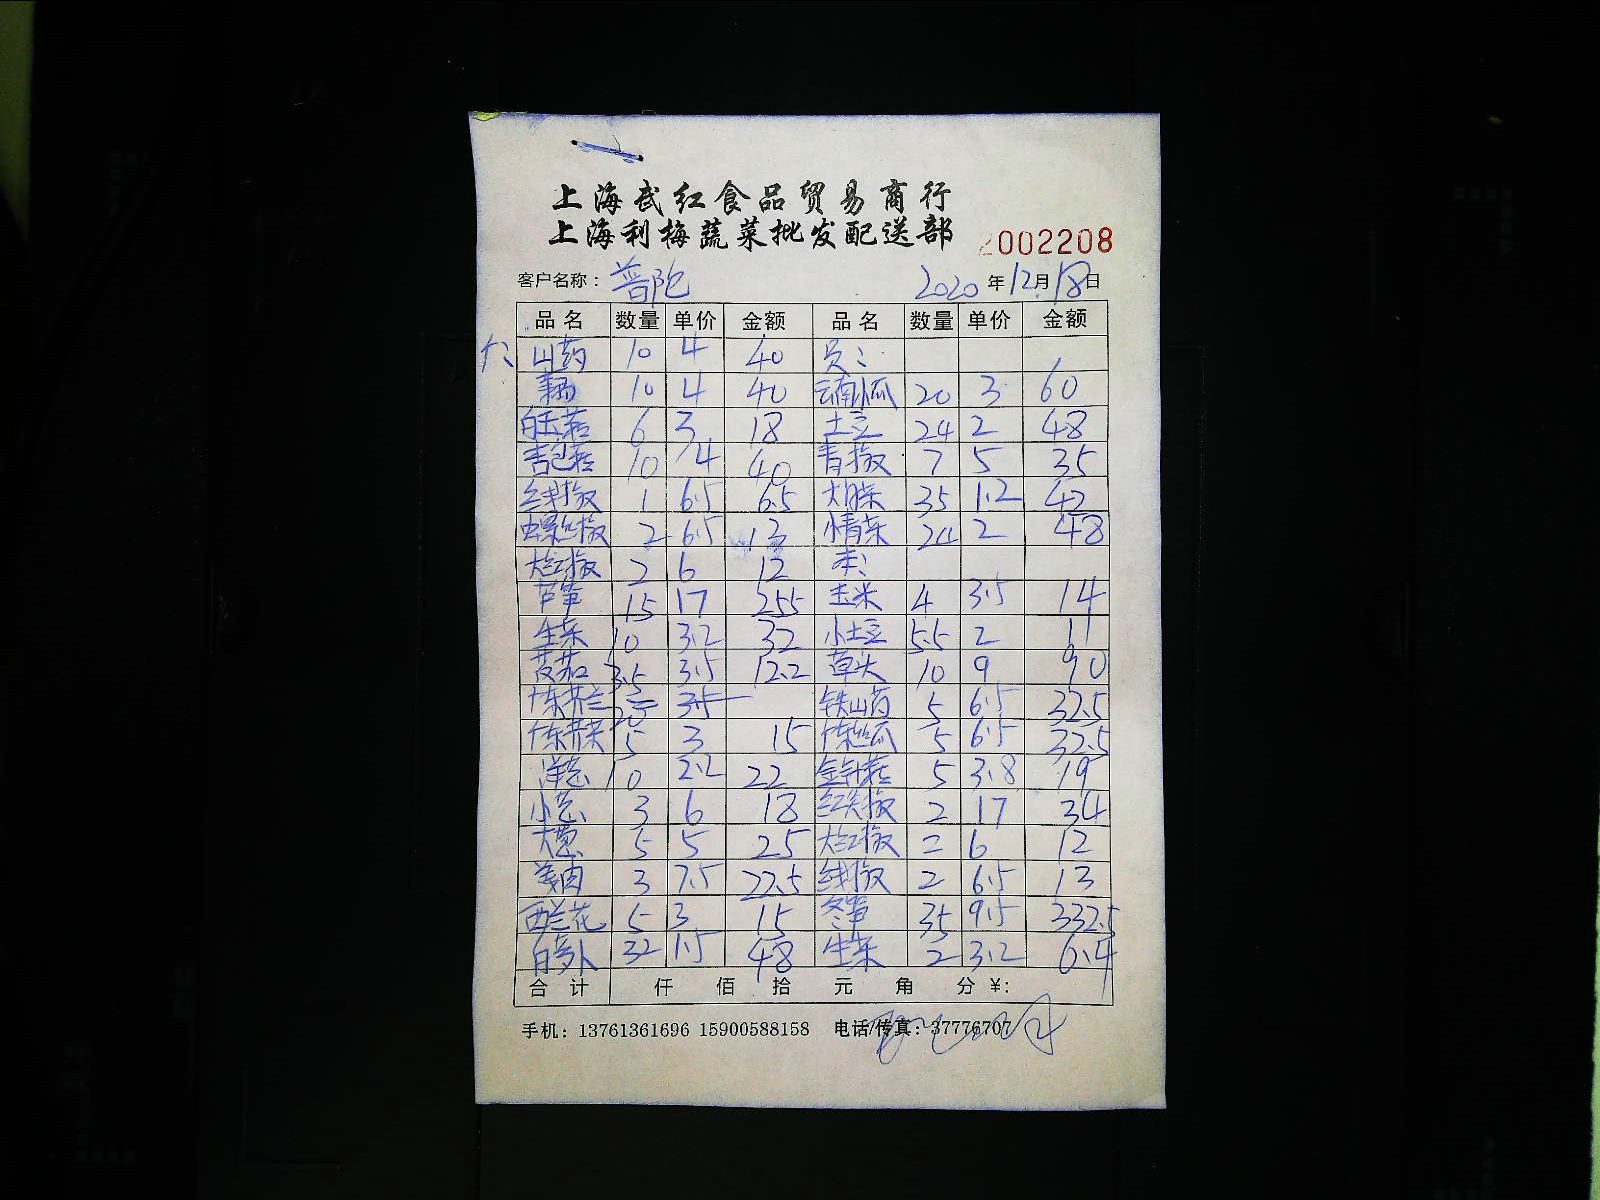 上海武红食品贸易商行
上海利梅蔬菜批发配送部
2002208
客户名称：普陀 2020年12月18日
品名 数量 单价 金额 品名 数量 单价 金额
山药 10 4 40 员：
藕 10 4 40 云南小瓜 20 3 60
白玉菇 6 3 18 土豆 24 2 48
杏包菇 10 4 40 青椒 7 5 35
线椒 1 6.5 6.5 大白菜 35 1.2 42
螺丝椒 2 6.5 13 小青菜 24 2 48
大红椒 2 6 12
芦笋 15 17 255 玉米 4 3.5 14
生菜 10 3.2 32 小土豆 5.5 2 11
茭茹 3.5 3.5 12.2 草头 10 9 90
广东芥兰 3.5 铁山药 5 6.5 32.5
广东芥菜 5 3 15 广东丝瓜 5 6.5 32.5
洋葱 10 2.2 22 金针菇 5 3.8 19
小葱 3 6 18 红尖椒 2 17 34
大葱 5 5 25 大红椒 2 6 12
姜肉 3 7.5 22.5 线椒 2 6.5 13
西兰花 5 3 15 冬笋 35 9.5 332.5
白萝卜 32 1.5 48 生菜 2 3.2 6.4
合计 仟 佰 拾 元 角 分 ￥:
手机：13761361696 15900588158 电话/传真：37776707